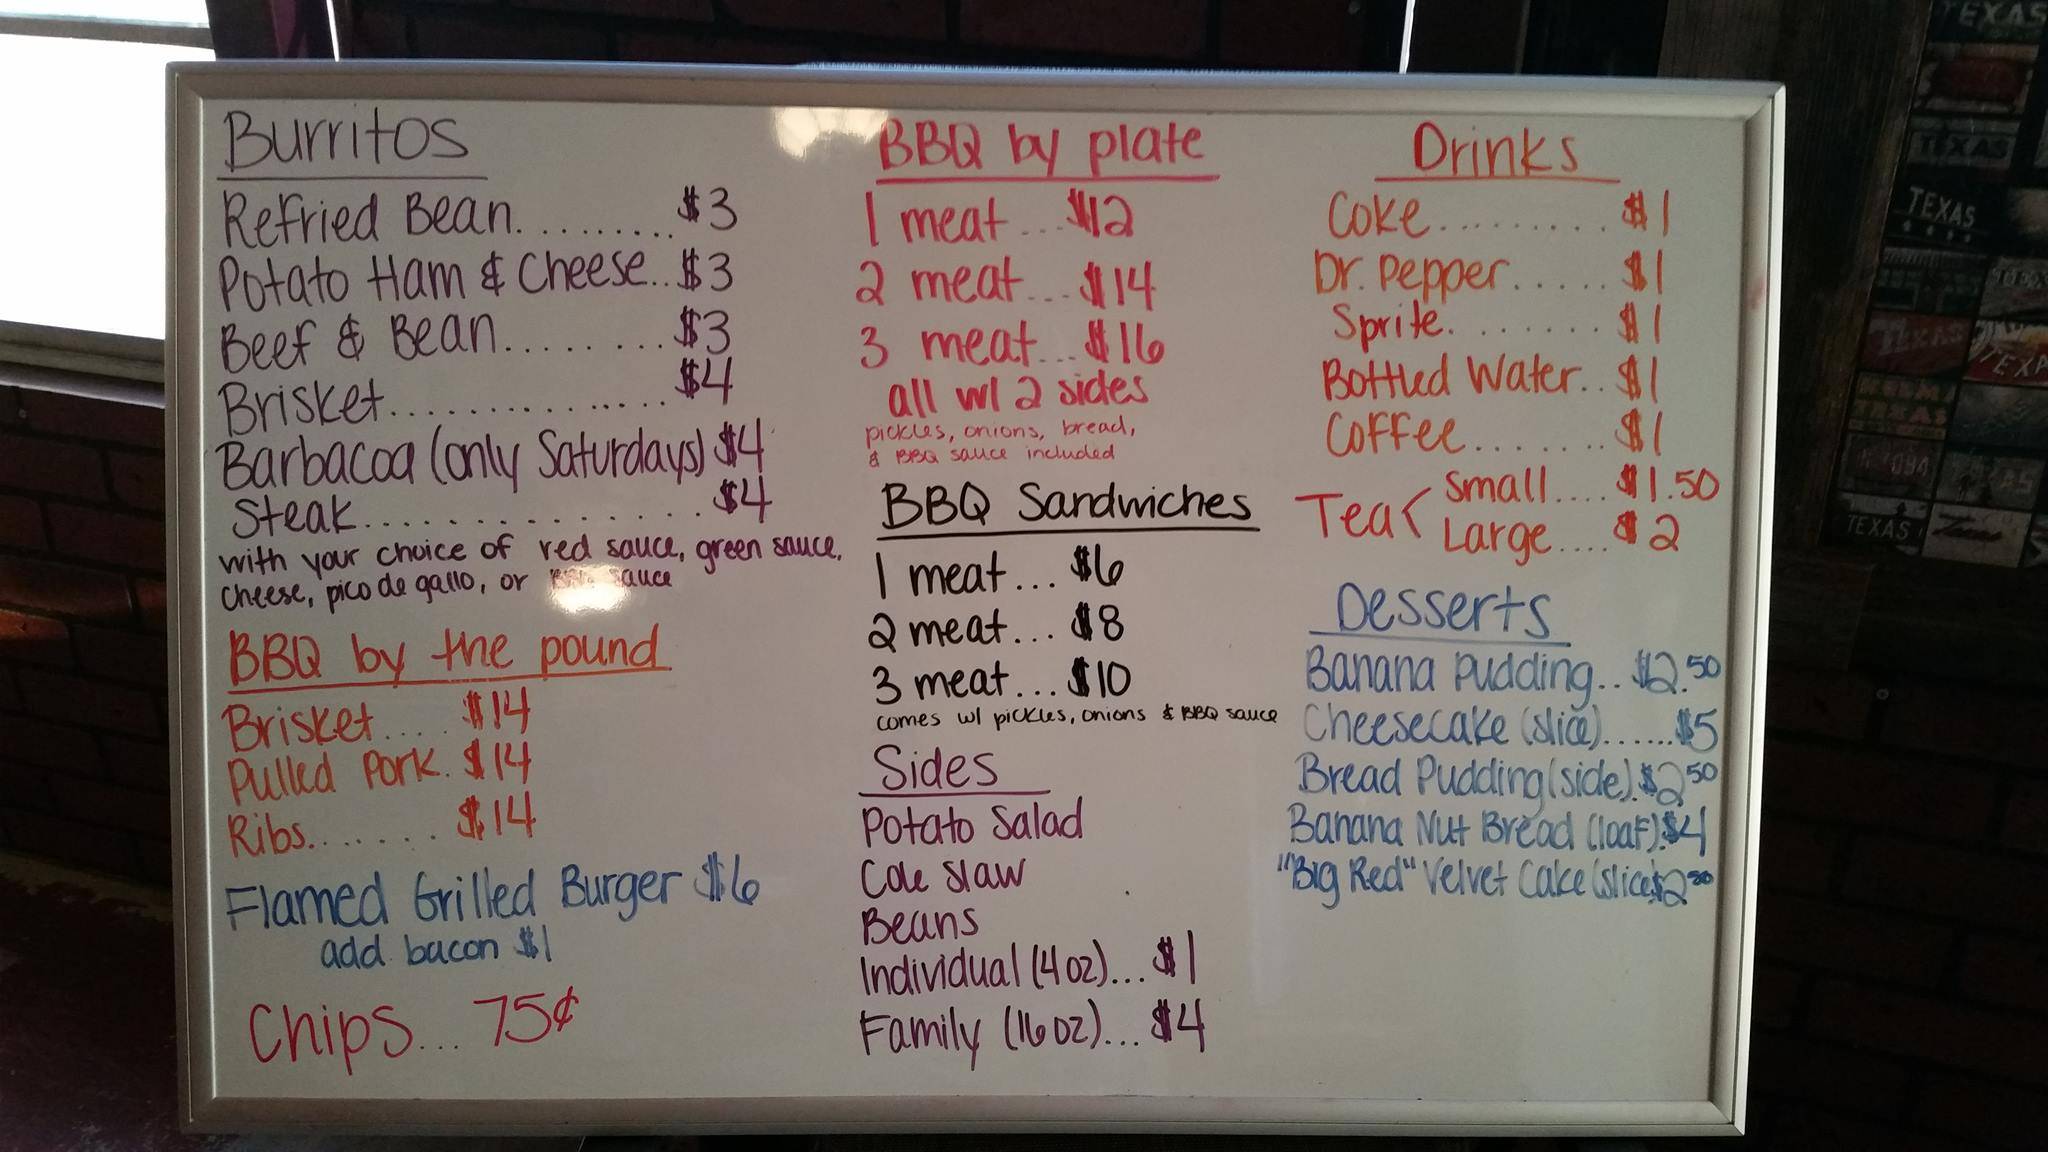 Burritos
Refried Bean.........$3
Potato Ham & Cheese..$3
Beef & Bean........$3
Brisket..............$4
Barbacoa (only Saturdays) $4
Steak...............$4
with your choice of red sauce, green sauce,
cheese, pico de gallo, or BBQ sauce
BBQ by the pound
Brisket.... $14
Pulled Pork. $14
Ribs....... $14
Flamed Grilled Burger $6
add bacon $1
Chips... 75¢
BBQ by plate
1 meat...$12
2 meat...$14
3 meat...$16
all w/ 2 sides
pickles, onions, bread,
& BBQ sauce included
BBQ Sandwiches
1 meat... $6
2 meat... $8
3 meat... $10
comes w/ pickles, onions & BBQ sauce
Sides
Potato Salad
Cole Slaw
Beans
Individual (4 oz)... $1
Family (16 oz)... $4
Drinks
Coke......... $1
Dr. Pepper..... $1
Sprite........ $1
Bottled Water.. $1
Coffee....... $1
Tea< Small.... $1.50
Large.... $2
Desserts
Banana Pudding.. $2.50
Cheesecake (slice)......$5
Bread Pudding (side).$2.50
Banana Nut Bread (loaf).$4
"Big Red" Velvet Cake (slice)$2.50
TEXAS
TEXAS
TEXAS
TEXAS
TEXAS
TEXAS